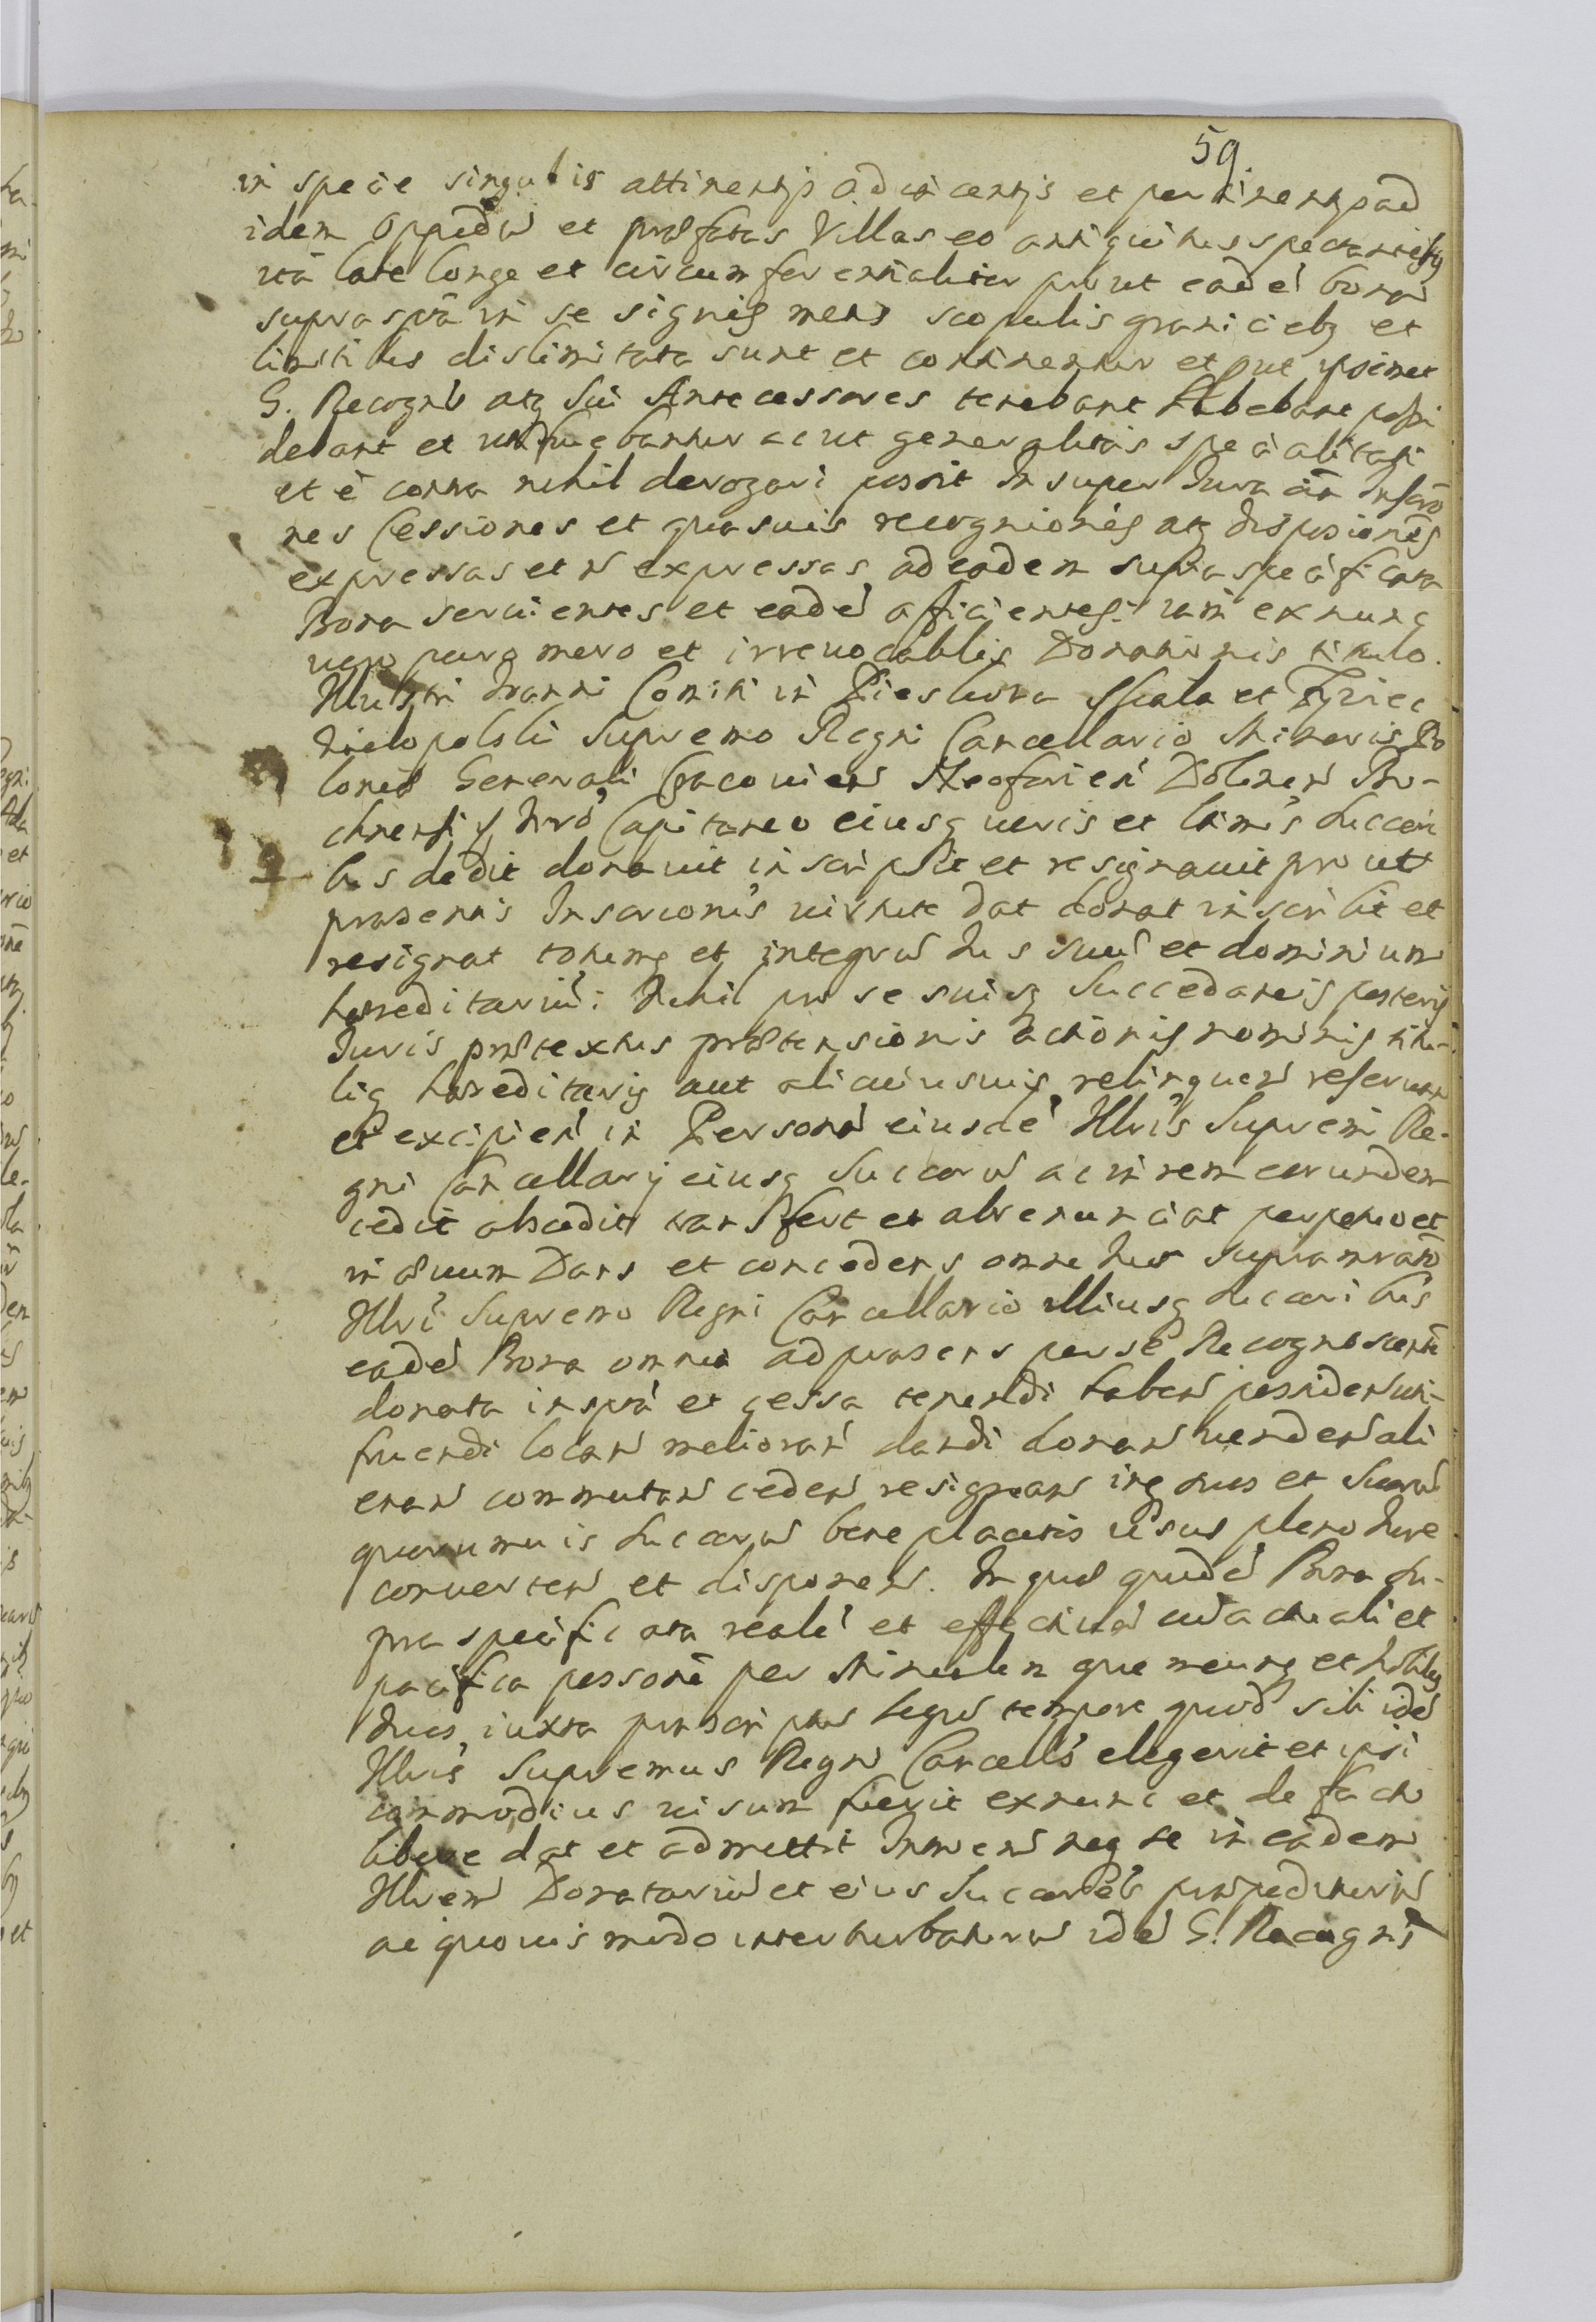 59.
in specie singulis attinentijs adiacentijs et pertinentijs ad
idem Oppidū et præfatas Villas eo antiquitus spectantibʒ
ità late longe et circumferentialiter prout eadē bona
supraspta in se signis metis scopulis granicieбʒ et
limitibus dislimitata sunt et continentur et put ipsemet
G. Recogns atq̨ sui Antecessores tenebant habebant possi
debant et utifruebantur ac ut generalitas specialitati
et è contra nihil derogari possit Insuper Iura oīa Inscrip̄o
nes Cessiones et quasuis recogniōnes atq̨ dispositiones
expressas et ñ expressas ad eadem supra specificata
Bona seruientes et eadē afficientes iam ex nunc
uero puro mero et irreuocabilis Donationis titulo
Illustri Ioanni Comiti in Pieskowa Skała et Zywiec
Wielopolski Supremo Regni Cancellario Minoris Po
loniæ Generali Cracouien Neoforien Dolinen Bo-
chnensi q̨ Capitaneo eiusq̨ ueris et ltimis Succori
bus dedit donauit inscripsit et resignauit prout
præsentis Inscrionis uirtute dat donat inscribit et
resignat totum et integrū Ius suū et dominium
hæreditariū: Nihil pro se suisq̨ Succedaneis posteris
Iuris prætextus prætensionis actionis nominis titu-
liq̨ hæreditarij aut alicuiusuis relinquen reseruan
et excipien in Personā eiusdē Illris Supremi Re-
gni Cancellarij eiusq̨ Succorū ac in rem eorundem
cedit abscedit transfert et abrenunciat perpetuo et
in æuum Dans et concedens omne Ius supranrato
Illri Supremo Regni Cancellario illiusq̨ Succoribus
eadē Bona omnia ad præsens per se Recognoscentē
donata inspta et cessa tenendi haben possiden uti-
fruendi locan melioran dandi donan uenden ali
enan commutan ceden resignan inq̨ usus et Suorū
quorumuis Succorū bene placitis usus pleno Iure
conuerten et disponen. In quæ quidē Bona Su-
pra specificata realē et effectiuā cū actuali et
pacifica possone per Ministerialem quemcunq̨ et Nobiles
duos iuxta præscriptum legis tempore quod sibi idē
Illris Supremus Regni Cancells elegerit et ipsi
commodius uisum fuerit exnunc et de facto
libere dat et admittit Intromen neq̨ se in eadem
Illrem Donatariū et eius Succores præpediturū
ac quouismodo interturbaturū idē G. Recogns